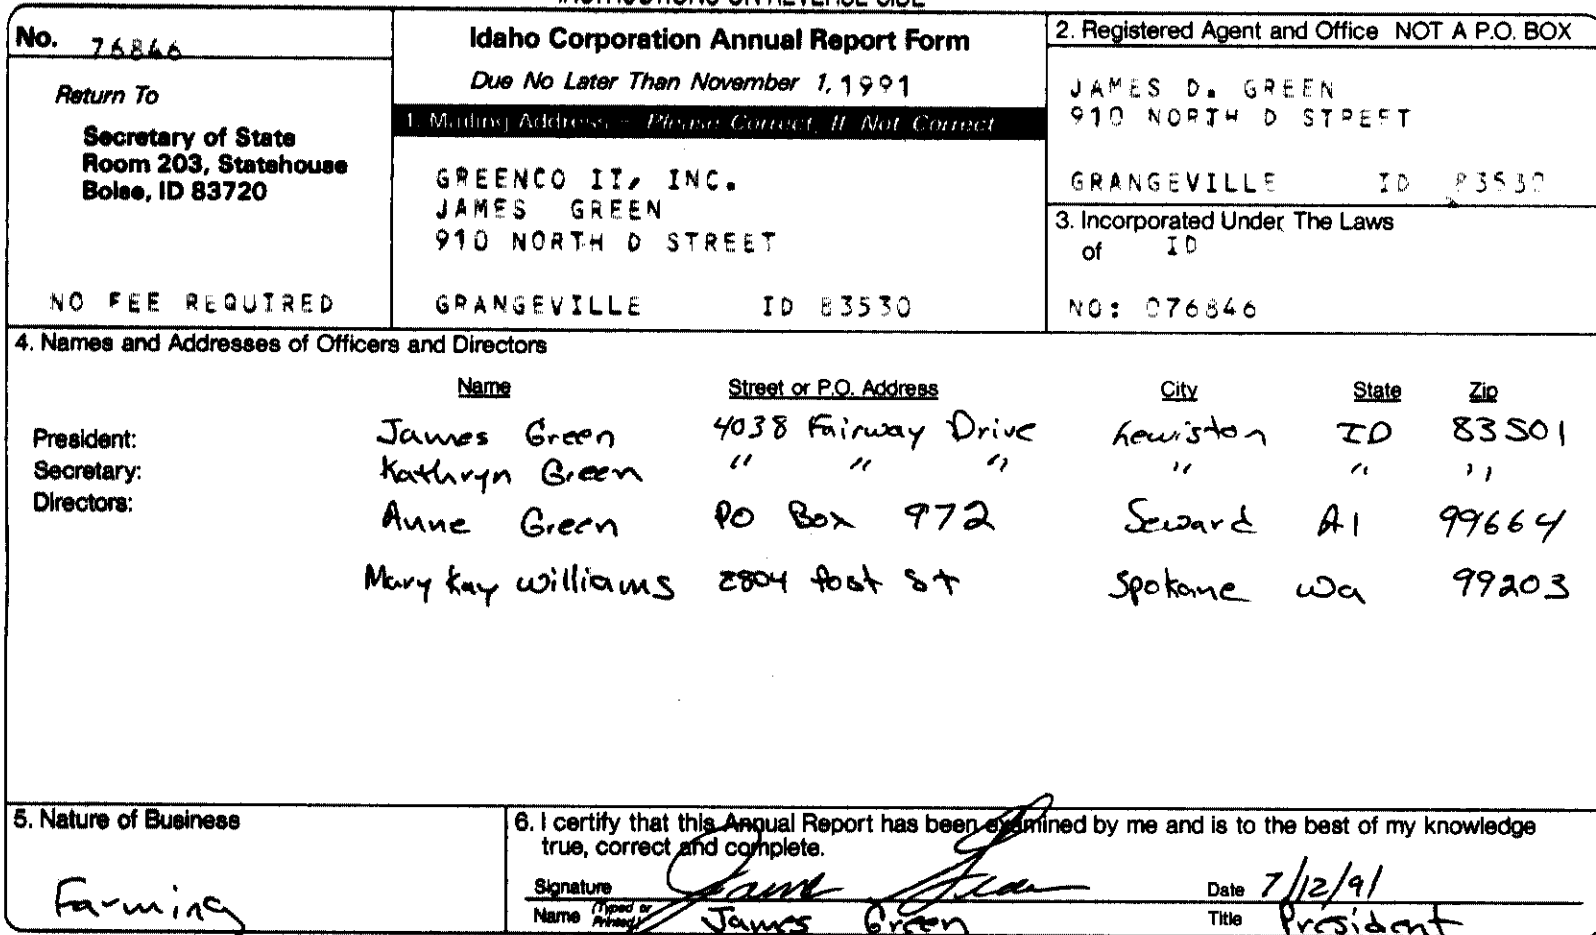 INSTRUCTIONS ON REVERSE SIDE
No. 76846
Return To
Secretary of State
Room 203, Statehouse
Boise, ID 83720
NO FEE REQUIRED
Idaho Corporation Annual Report Form
Due No Later Than November 1, 1991
1. Mailing Address - Please Correct, If Not Correct
GREENCO II, INC.
JAMES GREEN
910 NORTH D STREET
GRANGEVILLE ID 83530
2. Registered Agent and Office NOT A P.O. BOX
JAMES D. GREEN
910 NORTH D STREET
GRANGEVILLE ID 83530
3. Incorporated Under The Laws
of ID
NO: 076846
4. Names and Addresses of Officers and Directors
Name Street or P.O. Address City State Zip
President: James Green 4038 Fairway Drive Lewiston ID 83501
Secretary: Kathryn Green " " " " " "
Directors: Anne Green PO Box 972 Seward Al 99664
Mary Kay Williams 2804 Post St Spokane Wa 99203
5. Nature of Business
Farming
6. I certify that this Annual Report has been examined by me and is to the best of my knowledge
true, correct and complete.
Signature James Green Date 7/12/91
Name (Typed or Printed) James Green Title President